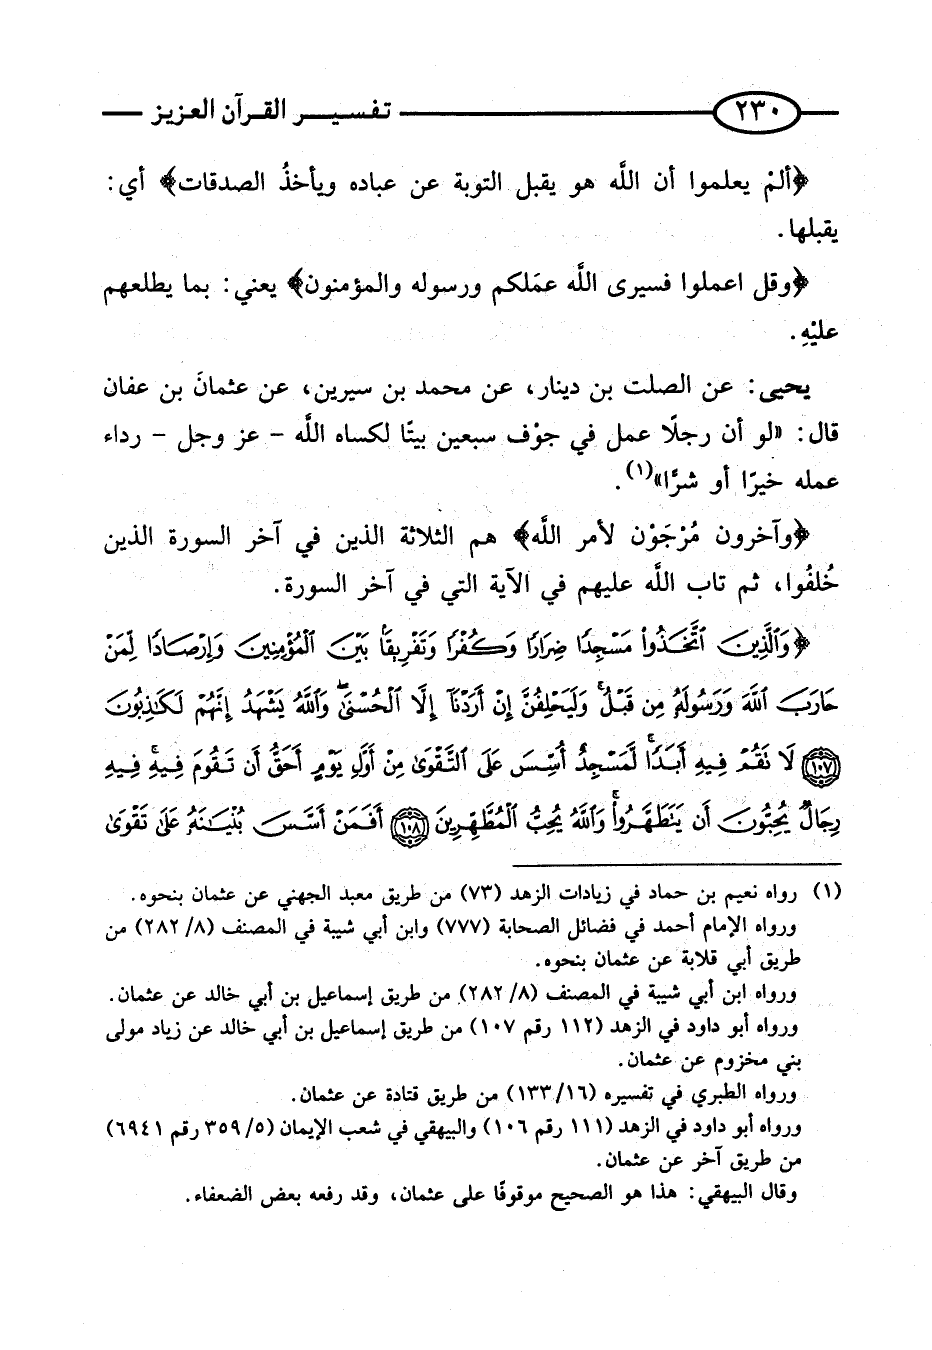 ٢٣٠ تفسير القرآن العزيز
﴿ألمْ يعلموا أن اللَّه هو يقبل التوبة عن عباده ويأخذُ الصدقات﴾ أي:
يقبلها.
﴿وقل اعملوا فسيرى اللَّه عمَلكم ورسوله والمؤمنون﴾ يعني: بما يطلعهم
عليْهِ.
يحيى: عن الصلت بن دينار، عن محمد بن سيرين، عن عثمانَ بن عفان
قال: «لو أن رجلًا عمل في جوْف سبعين بيتًا لكساه اللَّه - عز وجل - رداء
عمله خيرًا أو شرًّا»(١).
﴿وآخرون مُرْجَوْن لأمر اللَّه﴾ هم الثلاثة الذين في آخر السورة الذين
خُلفُوا، ثم تاب اللَّه عليهم في الآية التي في آخر السورة.
﴿وَٱلَّذِينَ ٱتَّخَذُواْ مَسْجِدًا ضِرَارًا وَكُفْرًا وَتَفْرِيقًۢا بَيْنَ ٱلْمُؤْمِنِينَ وَإِرْصَادًا لِّمَنْ
حَارَبَ ٱللَّهَ وَرَسُولَهُۥ مِن قَبْلُ ۚ وَلَيَحْلِفُنَّ إِنْ أَرَدْنَآ إِلَّا ٱلْحُسْنَىٰ ۖ وَٱللَّهُ يَشْهَدُ إِنَّهُمْ لَكَٰذِبُونَ
١٠٧ لَا تَقُمْ فِيهِ أَبَدًا ۚ لَّمَسْجِدٌ أُسِّسَ عَلَى ٱلتَّقْوَىٰ مِنْ أَوَّلِ يَوْمٍ أَحَقُّ أَن تَقُومَ فِيهِ ۚ فِيهِ
رِجَالٌ يُحِبُّونَ أَن يَتَطَهَّرُواْ ۚ وَٱللَّهُ يُحِبُّ ٱلْمُطَّهِّرِينَ ١٠٨ أَفَمَنْ أَسَّسَ بُنْيَٰنَهُۥ عَلَىٰ تَقْوَىٰ
(١) رواه نعيم بن حماد في زيادات الزهد (٧٣) من طريق معبد الجهني عن عثمان بنحوه.
ورواه الإمام أحمد في فضائل الصحابة (٧٧٧) وابن أبي شيبة في المصنف (٨/ ٢٨٢) من
طريق أبي قلابة عن عثمان بنحوه.
ورواه ابن أبي شيبة في المصنف (٨/ ٢٨٢) من طريق إسماعيل بن أبي خالد عن عثمان.
ورواه أبو داود في الزهد (١١٢ رقم ١٠٧) من طريق إسماعيل بن أبي خالد عن زياد مولى
بني مخزوم عن عثمان.
ورواه الطبري في تفسيره (١٦/ ١٣٣) من طريق قتادة عن عثمان.
ورواه أبو داود في الزهد (١١١ رقم ١٠٦) والبيهقي في شعب الإيمان (٥/ ٣٥٩ رقم ٦٩٤١)
من طريق آخر عن عثمان.
وقال البيهقي: هذا هو الصحيح موقوفًا على عثمان، وقد رفعه بعض الضعفاء.